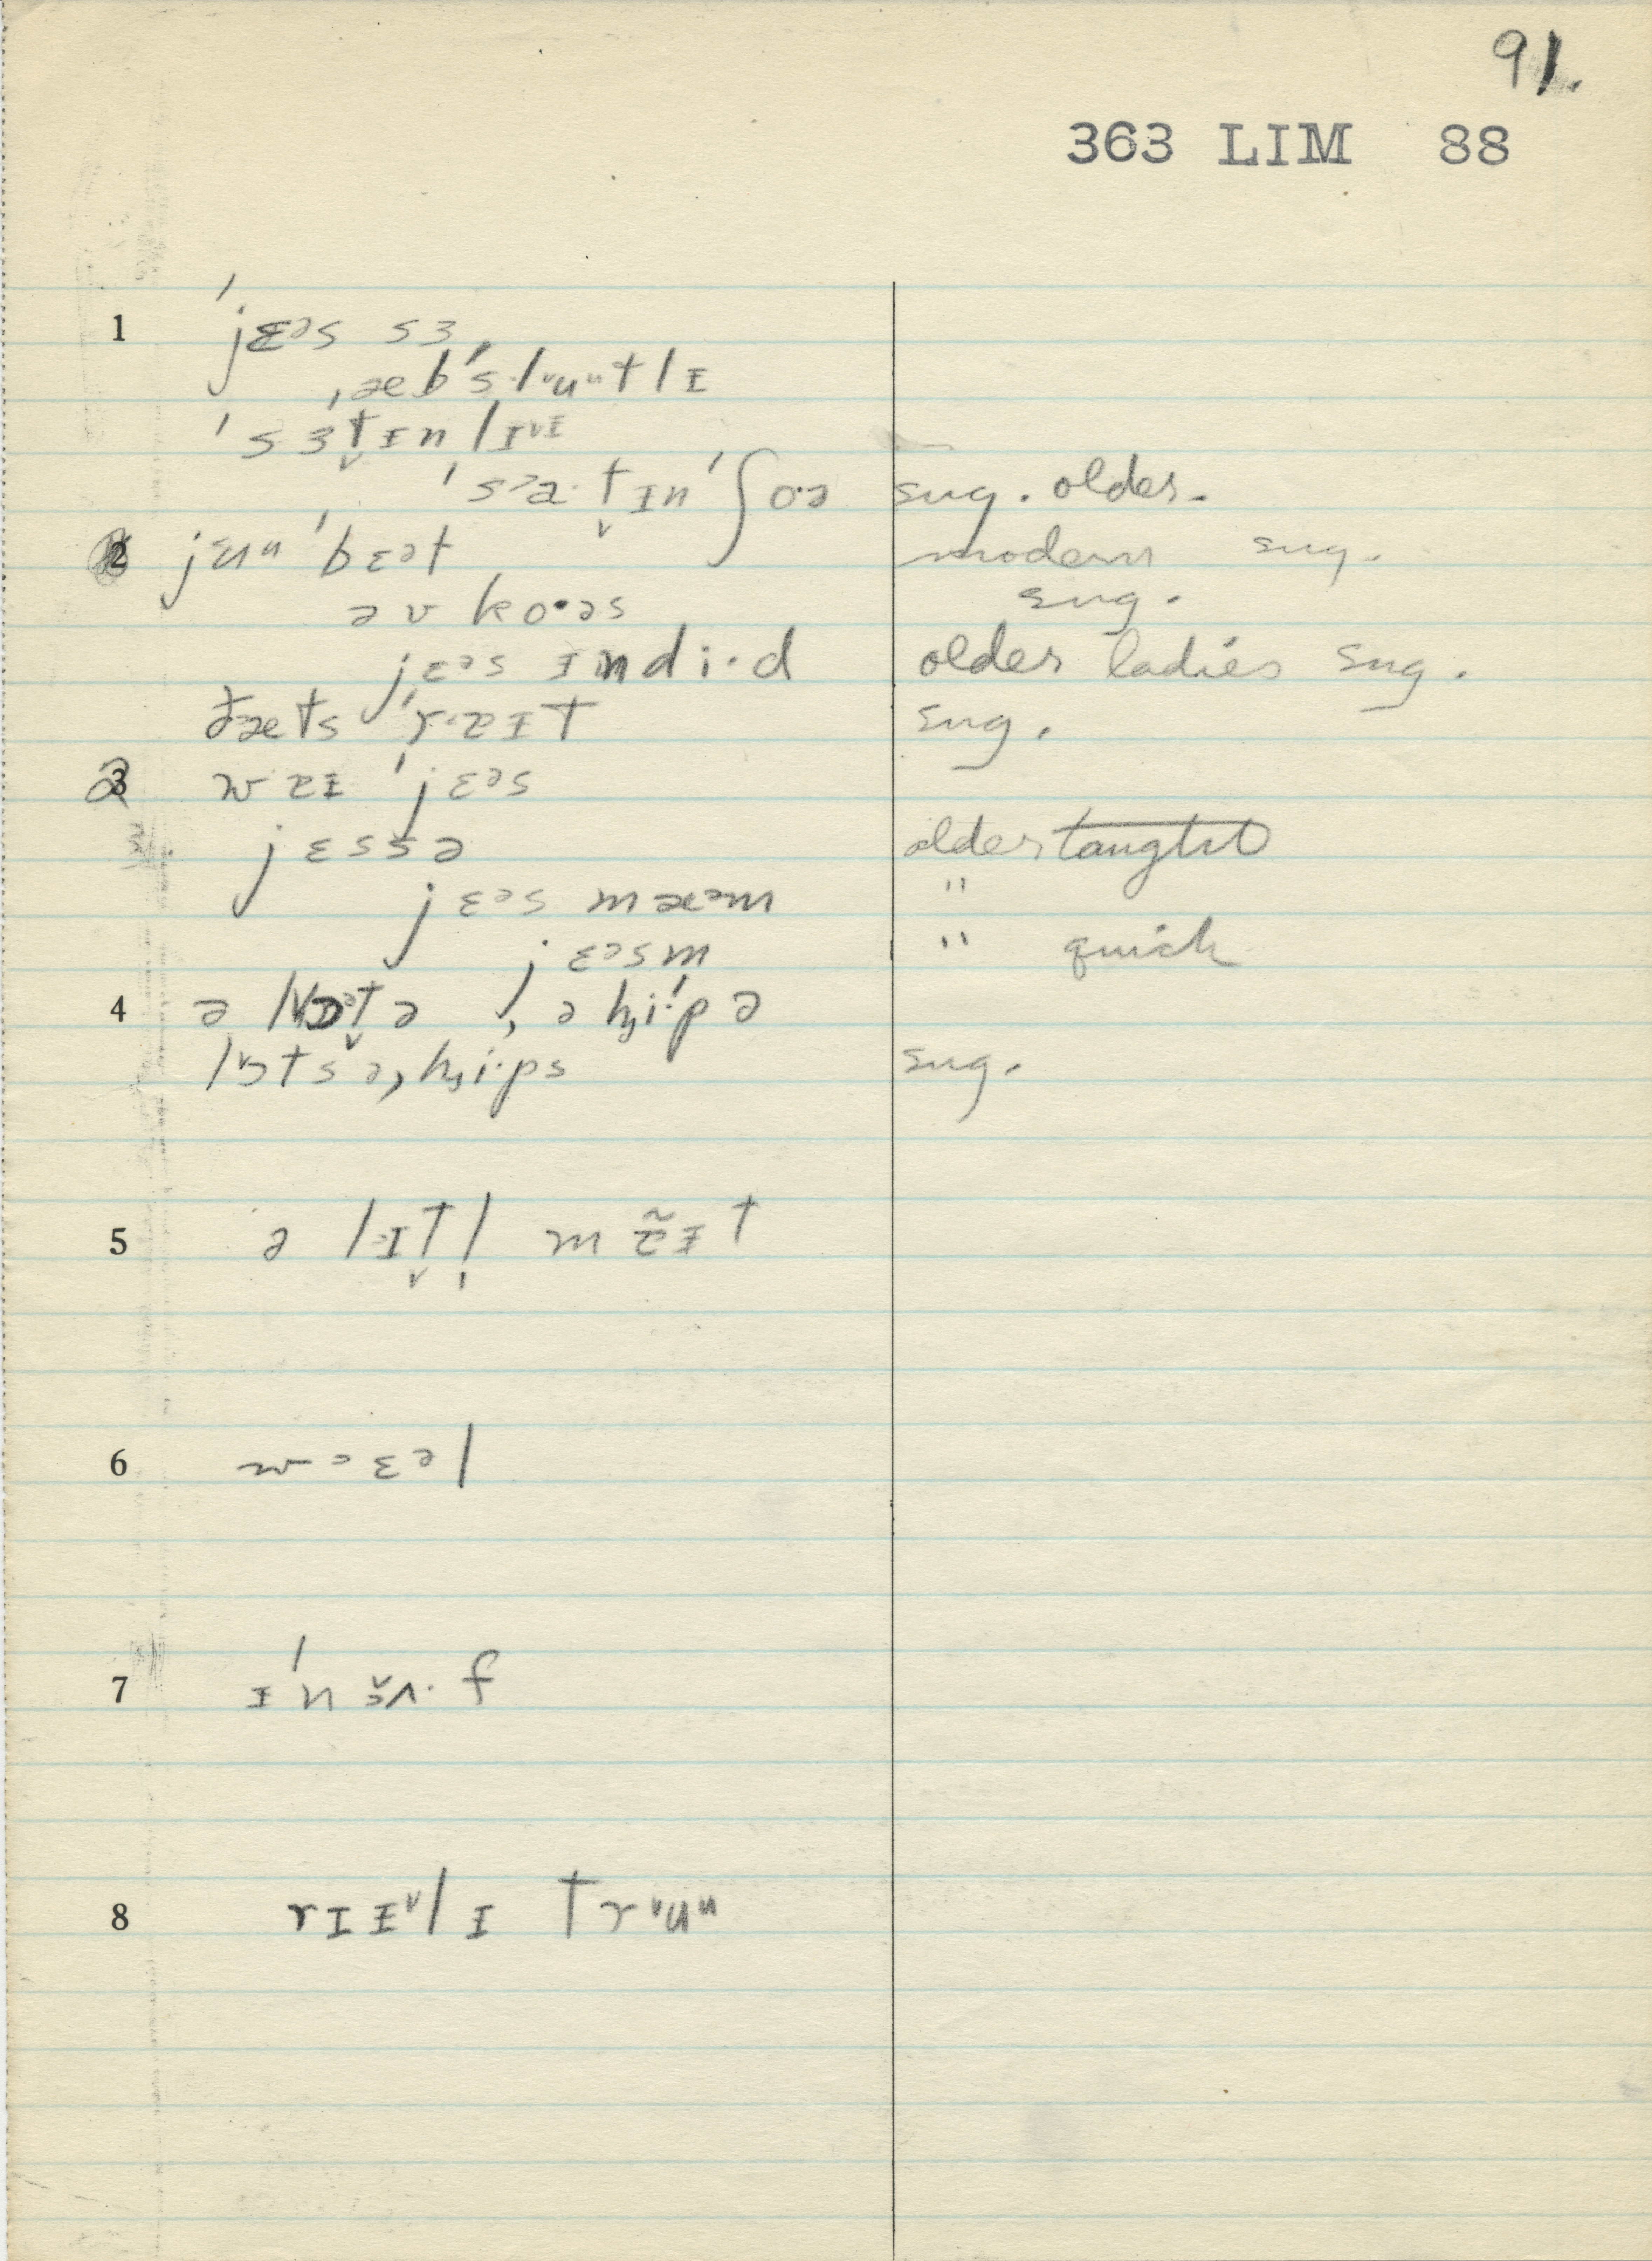 91.
363 LIM 88
1 ˈjɛəs sɜ
ˌæbˈslʉutlɪ
ˈsɜt̬ɪnlɪ
ˈsɜa·t̬ɪnˈʃo·ə sug. older.
2 jʉu ˈbɛət modern sug.
əv ko·əs sug.
jɛəs ɪndi·d older ladies sug.
ðæts ˈrɐɪt sug.
3 wɐɪ ˈjɛəs
jɛssə older taught
jɛəs mæəm "
jɛəsm " quick
4 ə lɒt̬ə , ə hi·pə
lɒts ə, hi·ps sug.
5 ə lɪt̬l̩ mɐ̃ɪt
6 wɛəl
7 ɪˈnʌ·f
8 rɪɪlɪ trʉu